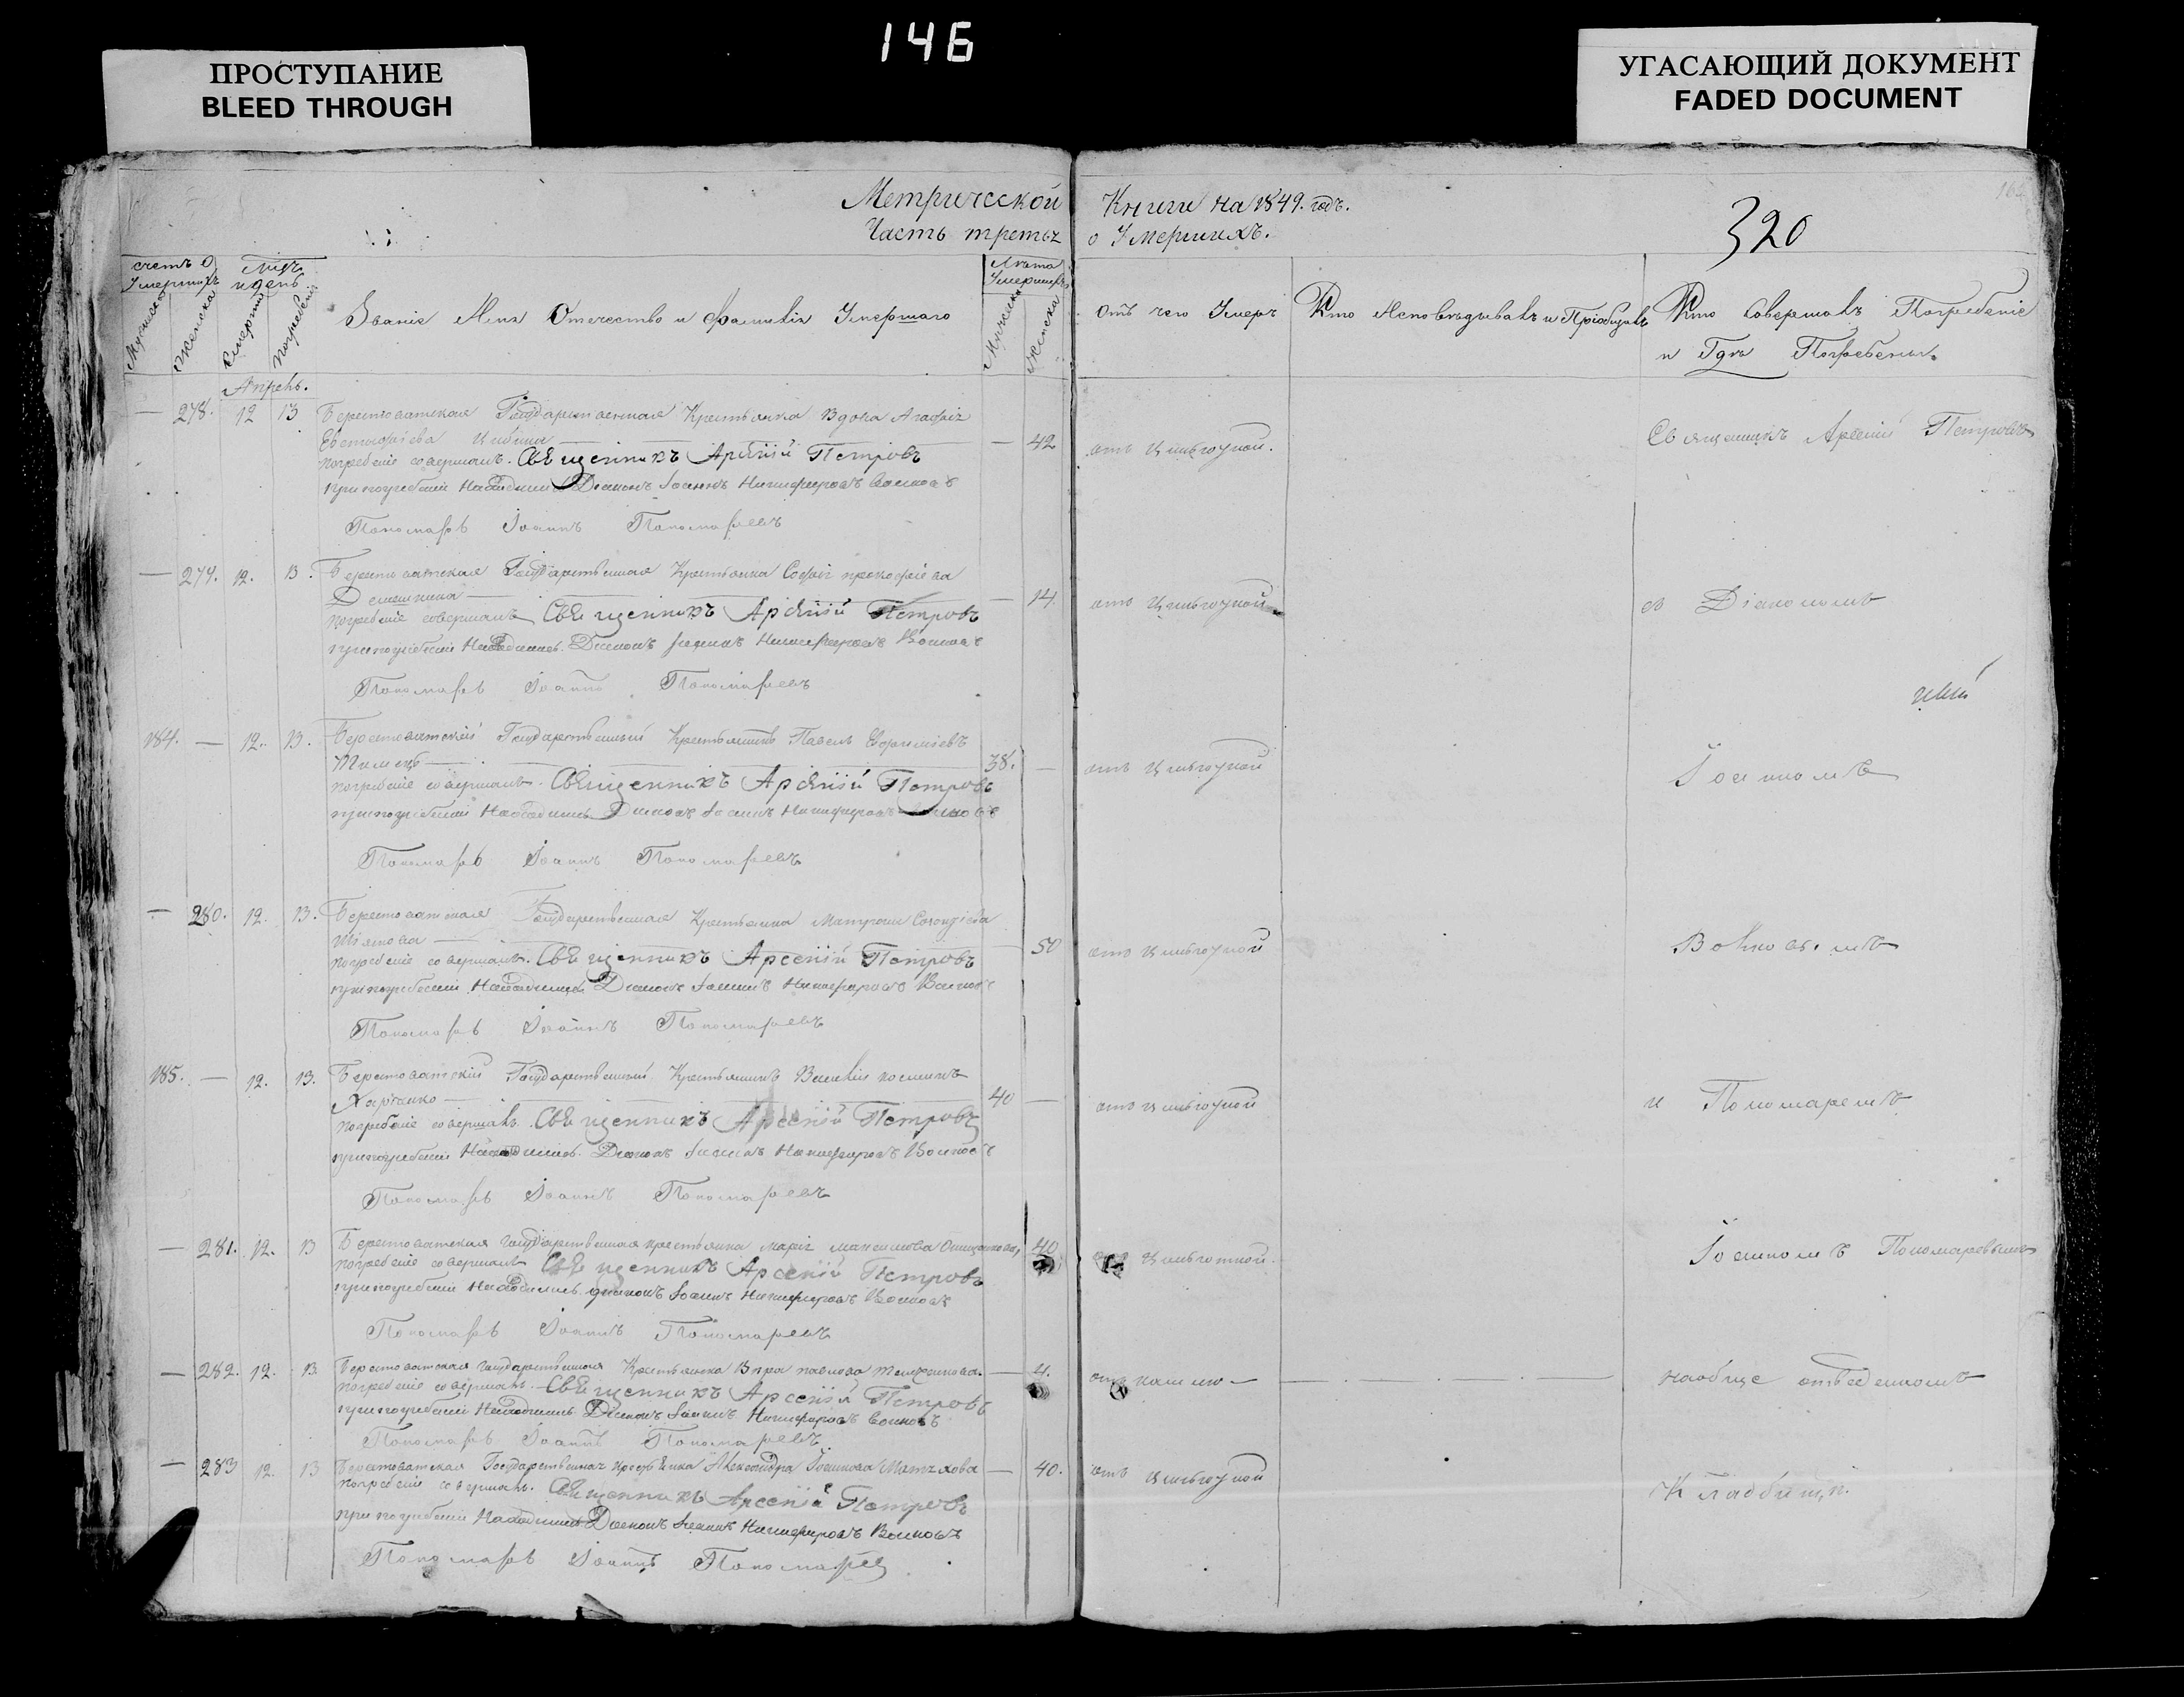 146
ПРОСТУПАНИЕ
BLEED THROUGH
УГАСАЮЩИЙ ДОКУМЕНТ
FADED DOCUMENT
Метрической Книги на 1849. годъ.
Часть третья о Умершихъ.
320
счетъ Умершихъ
Мужеска
Женска
Мцъ и день
Смерти
Погребенія
Званіе Имя Отечество и Фамилія Умершаго
Лѣта Умершихъ
Мужеска
Женска
отъ чего Умеръ
Кто Исповѣдывалъ и Пріобщалъ
Кто Совершалъ Погребеніе
и Гдѣ Погребены.
Апрель.
— 278. 12 13 Берестоватская Государственная Крестьянка Вдова Агафія
— 42 отъ Цынготной.
Священникъ Арсеній Петровъ
погребеніе совершалъ. Священникъ Арсеній Петровъ
при погребеніи Находились Діаконъ Іоаннъ Никифоровъ Войновъ
Пономарь Іоаннъ Пономаревъ
— 279. 12. 13. Берестоватская Государственная Крестьянка Софія прокофіева
— 14. отъ Цынготной
съ Діакономъ
погребеніе совершалъ Священникъ Арсеній Петровъ
при погребеніи Находились. Діаконъ Іоаннъ Никифоровъ Войновъ
Пономарь Іоаннъ Пономаревъ
184. — 12. 13. Берестоватскій Государственный Крестьянинъ Павелъ Ефимовъ
38. — отъ Цынготной
Іоанномъ
погребеніе совершалъ. Священникъ Арсеній Петровъ
при погребеніи Находились Діаконъ Іоаннъ Никифоровъ Войновъ
Пономарь Іоаннъ Пономаревъ
— 280. 12. 13. Берестоватская Государственная Крестьянка Матрона
— 50 отъ Цынготной
погребеніе совершалъ. Священникъ Арсеній Петровъ
при погребеніи Находились Діаконъ Іоаннъ Никифоровъ Войновъ
Пономарь Іоаннъ Пономаревъ
185. — 12. 13. Берестоватскій Государственный Крестьянинъ Василій
Харченко
40 — отъ Цынготной
и Пономаремъ
погребеніе совершалъ. Священникъ Арсеній Петровъ
при погребеніи Находились. Діаконъ Іоаннъ Никифоровъ Войновъ
Пономарь Іоаннъ Пономаревъ
— 281. 12. 13 Берестоватская государственная крестьянка марія
40 отъ Цынготной.
Іоанномъ Пономаревымъ
погребеніе совершалъ Священникъ Арсеній Петровъ
при погребеніи Находились діаконъ Іоаннъ Никифоровъ Войновъ
Пономарь Іоаннъ Пономаревъ
— 282. 12. 13 Берестоватская государственная Крестьянка Вѣра павлова
— 4. отъ кашлю —
наобще отведенномъ
погребеніе совершалъ. Священникъ Арсеній Петровъ
при погребеніи Находились. Діаконъ Іоаннъ Никифоровъ Войновъ
Пономарь Іоаннъ Пономаревъ.
— 283 12. 13 Берестоватская Государственная крестьянка Александра
— 40. отъ Цынготной
Кладбищѣ.
погребеніе совершалъ. Священникъ Арсеній Петровъ
при погребеніи Находились Діаконъ Іоаннъ Никифоровъ Войновъ
Пономарь Іоаннъ Пономарев